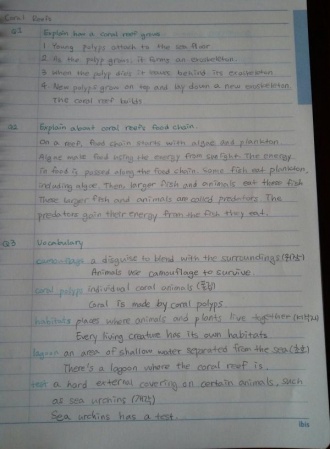 Coral Reefs
Q1 Explain how a coral reef grows
1. Young polyps attach to the sea floor
2. As the polyp grows, it forms an exoskeleton.
3. When the polyp dies it leaves behind its exoskeleton.
4. New polyps grow on top and lay down a new exoskeleton.
The coral reef builds
Q2 Explain about coral reefs food chain.
On a reef, food chain starts with algae and plankton.
Algae make food using the energy from sunlight. The energy
in food is passed along the food chain. Some fish eat plankton,
including algae. Then, larger fish and animals eat these fish
These larger fish and animals are called predators. The
predators gain their energy from the fish they eat.
Q3 Vocabulary
camouflage a disguise to blend with the surroundings
Animals use camouflage to survive.
coral polyps individual coral animals
Coral is made by coral polyps
habitats places where animals and plants live together
Every living creature has its own habitats
lagoon an area of shallow water separated from the sea
There's a lagoon where the coral reef is.
test a hard external covering on certain animals, such
as sea urchins
Sea urchins has a test.